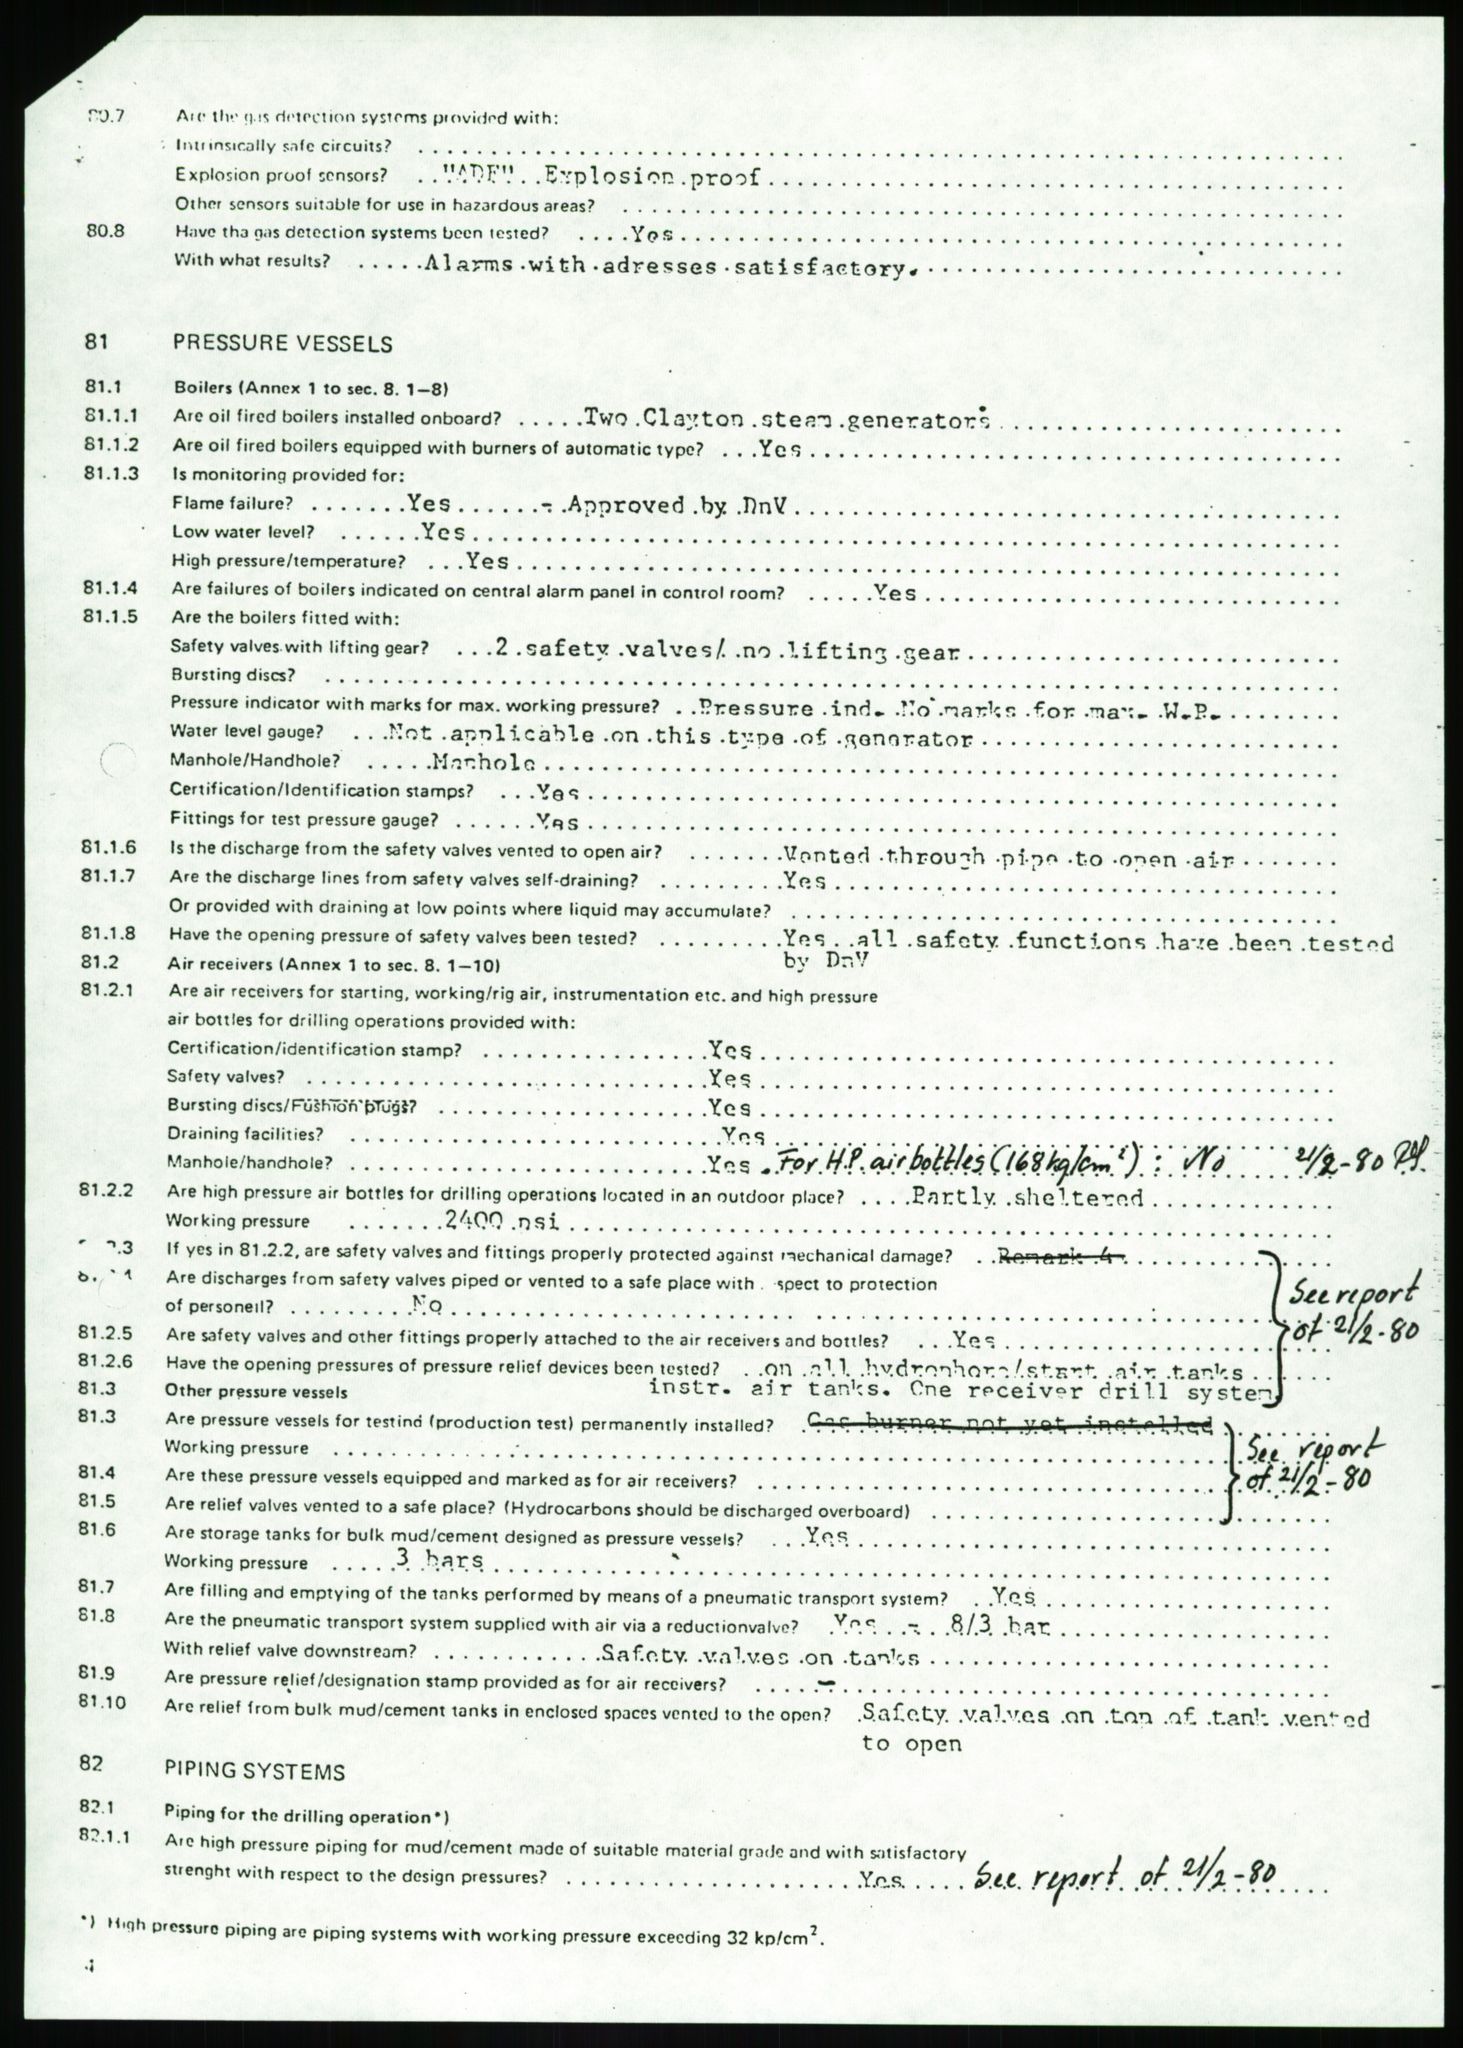 80.7 Are the gas detection systems provided with:
Intrinsically safe circuits?
Explosion proof sensors? "ADE" Explosion proof
Other sensors suitable for use in hazardous areas?
80.8 Have tha gas detection systems been tested? Yes
With what results? Alarms with adresses satisfactory.
81 PRESSURE VESSELS
81.1 Boilers (Annex 1 to sec. 8. 1–8)
81.1.1 Are oil fired boilers installed onboard? Two Clayton steam generators
81.1.2 Are oil fired boilers equipped with burners of automatic type? Yes
81.1.3 Is monitoring provided for:
Flame failure? Yes - Approved by DnV
Low water level? Yes
High pressure/temperature? Yes
81.1.4 Are failures of boilers indicated on central alarm panel in control room? Yes
81.1.5 Are the boilers fitted with:
Safety valves with lifting gear? 2 safety valves/ no lifting gear
Bursting discs?
Pressure indicator with marks for max. working pressure? Pressure ind. No marks for max. W.P.
Water level gauge? Not applicable on this type of generator
Manhole/Handhole? Manhole
Certification/Identification stamps? Yes
Fittings for test pressure gauge? Yes
81.1.6 Is the discharge from the safety valves vented to open air? Vented through pipe to open air
81.1.7 Are the discharge lines from safety valves self-draining? Yes
Or provided with draining at low points where liquid may accumulate?
81.1.8 Have the opening pressure of safety valves been tested? Yes all safety functions have been tested
by DnV
81.2 Air receivers (Annex 1 to sec. 8. 1–10)
81.2.1 Are air receivers for starting, working/rig air, instrumentation etc. and high pressure
air bottles for drilling operations provided with:
Certification/identification stamp? Yes
Safety valves? Yes
Bursting discs/Fushion plugs? Yes
Draining facilities? Yes
Manhole/handhole? Yes. For H.P. air bottles (168 kg/cm²): No 21/2-80
81.2.2 Are high pressure air bottles for drilling operations located in an outdoor place? Partly sheltered
Working pressure 2400 psi
.3 If yes in 81.2.2, are safety valves and fittings properly protected against mechanical damage? Remark 4
Are discharges from safety valves piped or vented to a safe place with spect to protection
See report
of personell? No
of 21/2-80
81.2.5 Are safety valves and other fittings properly attached to the air receivers and bottles? Yes
81.2.6 Have the opening pressures of pressure relief devices been tested? on all hydrophore/start air tanks
81.3 Other pressure vessels instr. air tanks. One receiver drill system
81.3 Are pressure vessels for testind (production test) permanently installed? Gas burner not yet installed
Working pressure See report
81.4 Are these pressure vessels equipped and marked as for air receivers? of 21/2-80
81.5 Are relief valves vented to a safe place? (Hydrocarbons should be discharged overboard)
81.6 Are storage tanks for bulk mud/cement designed as pressure vessels? Yes
Working pressure 3 bars
81.7 Are filling and emptying of the tanks performed by means of a pneumatic transport system? Yes
81.8 Are the pneumatic transport system supplied with air via a reductionvalve? Yes - 8/3 bar
With relief valve downstream? Safety valves on tanks
81.9 Are pressure relief/designation stamp provided as for air receivers? -
81.10 Are relief from bulk mud/cement tanks in enclosed spaces vented to the open? Safety valves on top of tank vented
to open
82 PIPING SYSTEMS
82.1 Piping for the drilling operation*)
82.1.1 Are high pressure piping for mud/cement made of suitable material grade and with satisfactory
strenght with respect to the design pressures? Yes See report of 21/2-80
*) High pressure piping are piping systems with working pressure exceeding 32 kp/cm².
4